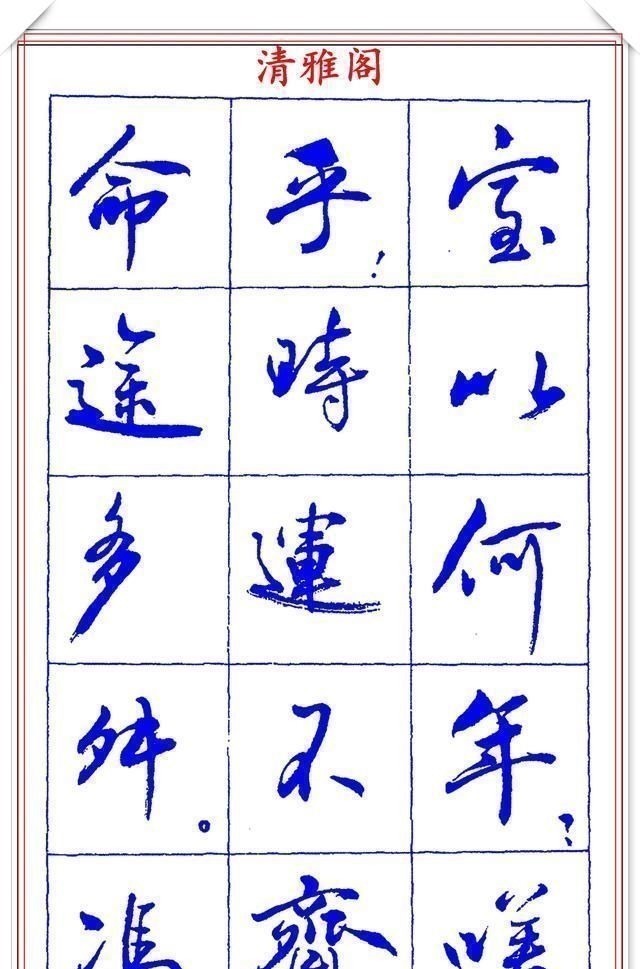 清雅阁
室以何年？嗟
乎！時運不齊
命途多舛。馮